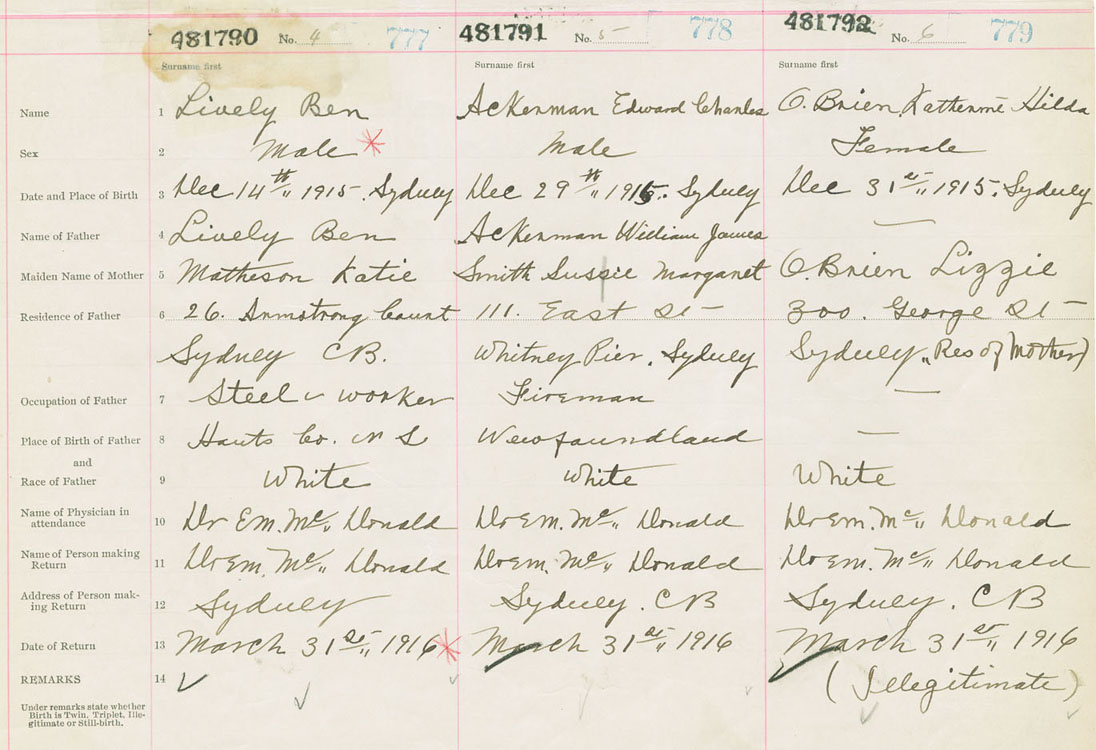 481790 No. 4 777 481791 No. 5 778 481792 No. 6 779
Surname first Surname first Surname first
Name 1 Lively Ben Ackerman Edward Charles O.Brien Katherine Hilda
Sex 2 Male Male Female
Date and Place of Birth 3 Dec 14th„ 1915. Sydney Dec 29th„ 1915. Sydney Dec 31st„ 1915. Sydney
Name of Father 4 Lively Ben Ackerman William James —
Maiden Name of Mother 5 Matheson Katie Smith Sussie Margaret O.Brien Lizzie
Residence of Father 6 26. Armstrong Court 111. East St 300. George St
Sydney CB. Whitney Pier. Sydney Sydney„ Res of Mother)
Occupation of Father 7 Steel worker Fireman —
Place of Birth of Father 8 Hants Co. N S Newfoundland —
and
Race of Father 9 White White White
Name of Physician in
attendance 10 Dr Em. Mc„ Donald Dr Em. Mc„ Donald Dr Em. Mc„ Donald
Name of Person making
Return 11 Dr Em. Mc„ Donald Dr Em. Mc„ Donald Dr Em. Mc„ Donald
Address of Person mak-
ing Return 12 Sydney Sydney. CB Sydney. CB
Date of Return 13 March 31st„ 1916 March 31st„ 1916 March 31st„ 1916
REMARKS 14 (Illegitimate)
Under remarks state whether
Birth is Twin, Triplet, Ille-
gitimate or Still-birth.